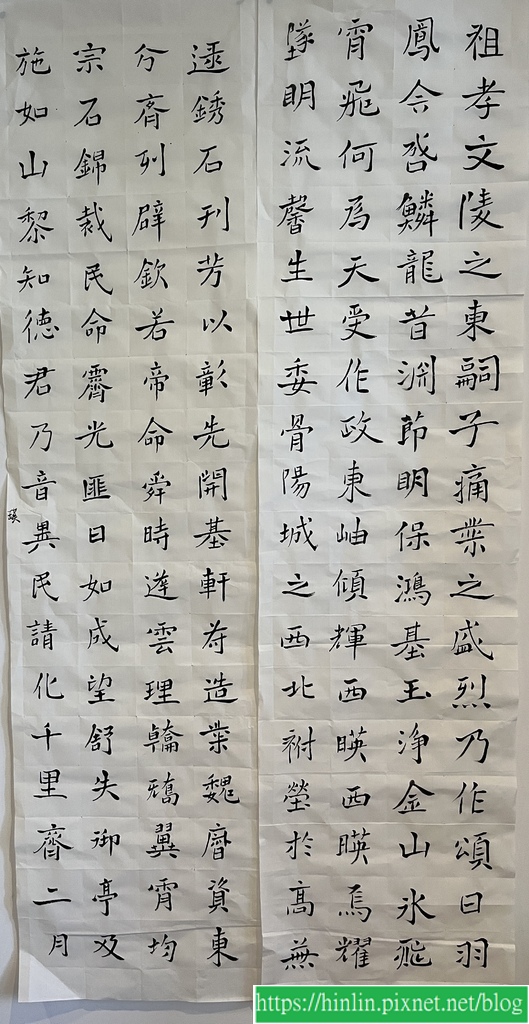 祖孝文陵之東嗣子痛業之盛烈乃作頌曰羽
鳳令啓鱗龍昔淵節明保鴻基玉淨金山氷飛
宵飛何為天受作政東岫傾輝西暎西暎焉耀
墜明流馨生世委骨陽城之西北祔塋於高蕪
逯銹石刊芳以彰先開基軒符造業魏曆資東
分齊列辟欽若帝命舜時運雲理翰矯翼霄均
宗石錦裁民命霽光匪日如成望舒失御亭及
施如山黎知德君乃音異民請化千里齊二月
https://hinlin.pixnet.net/blog